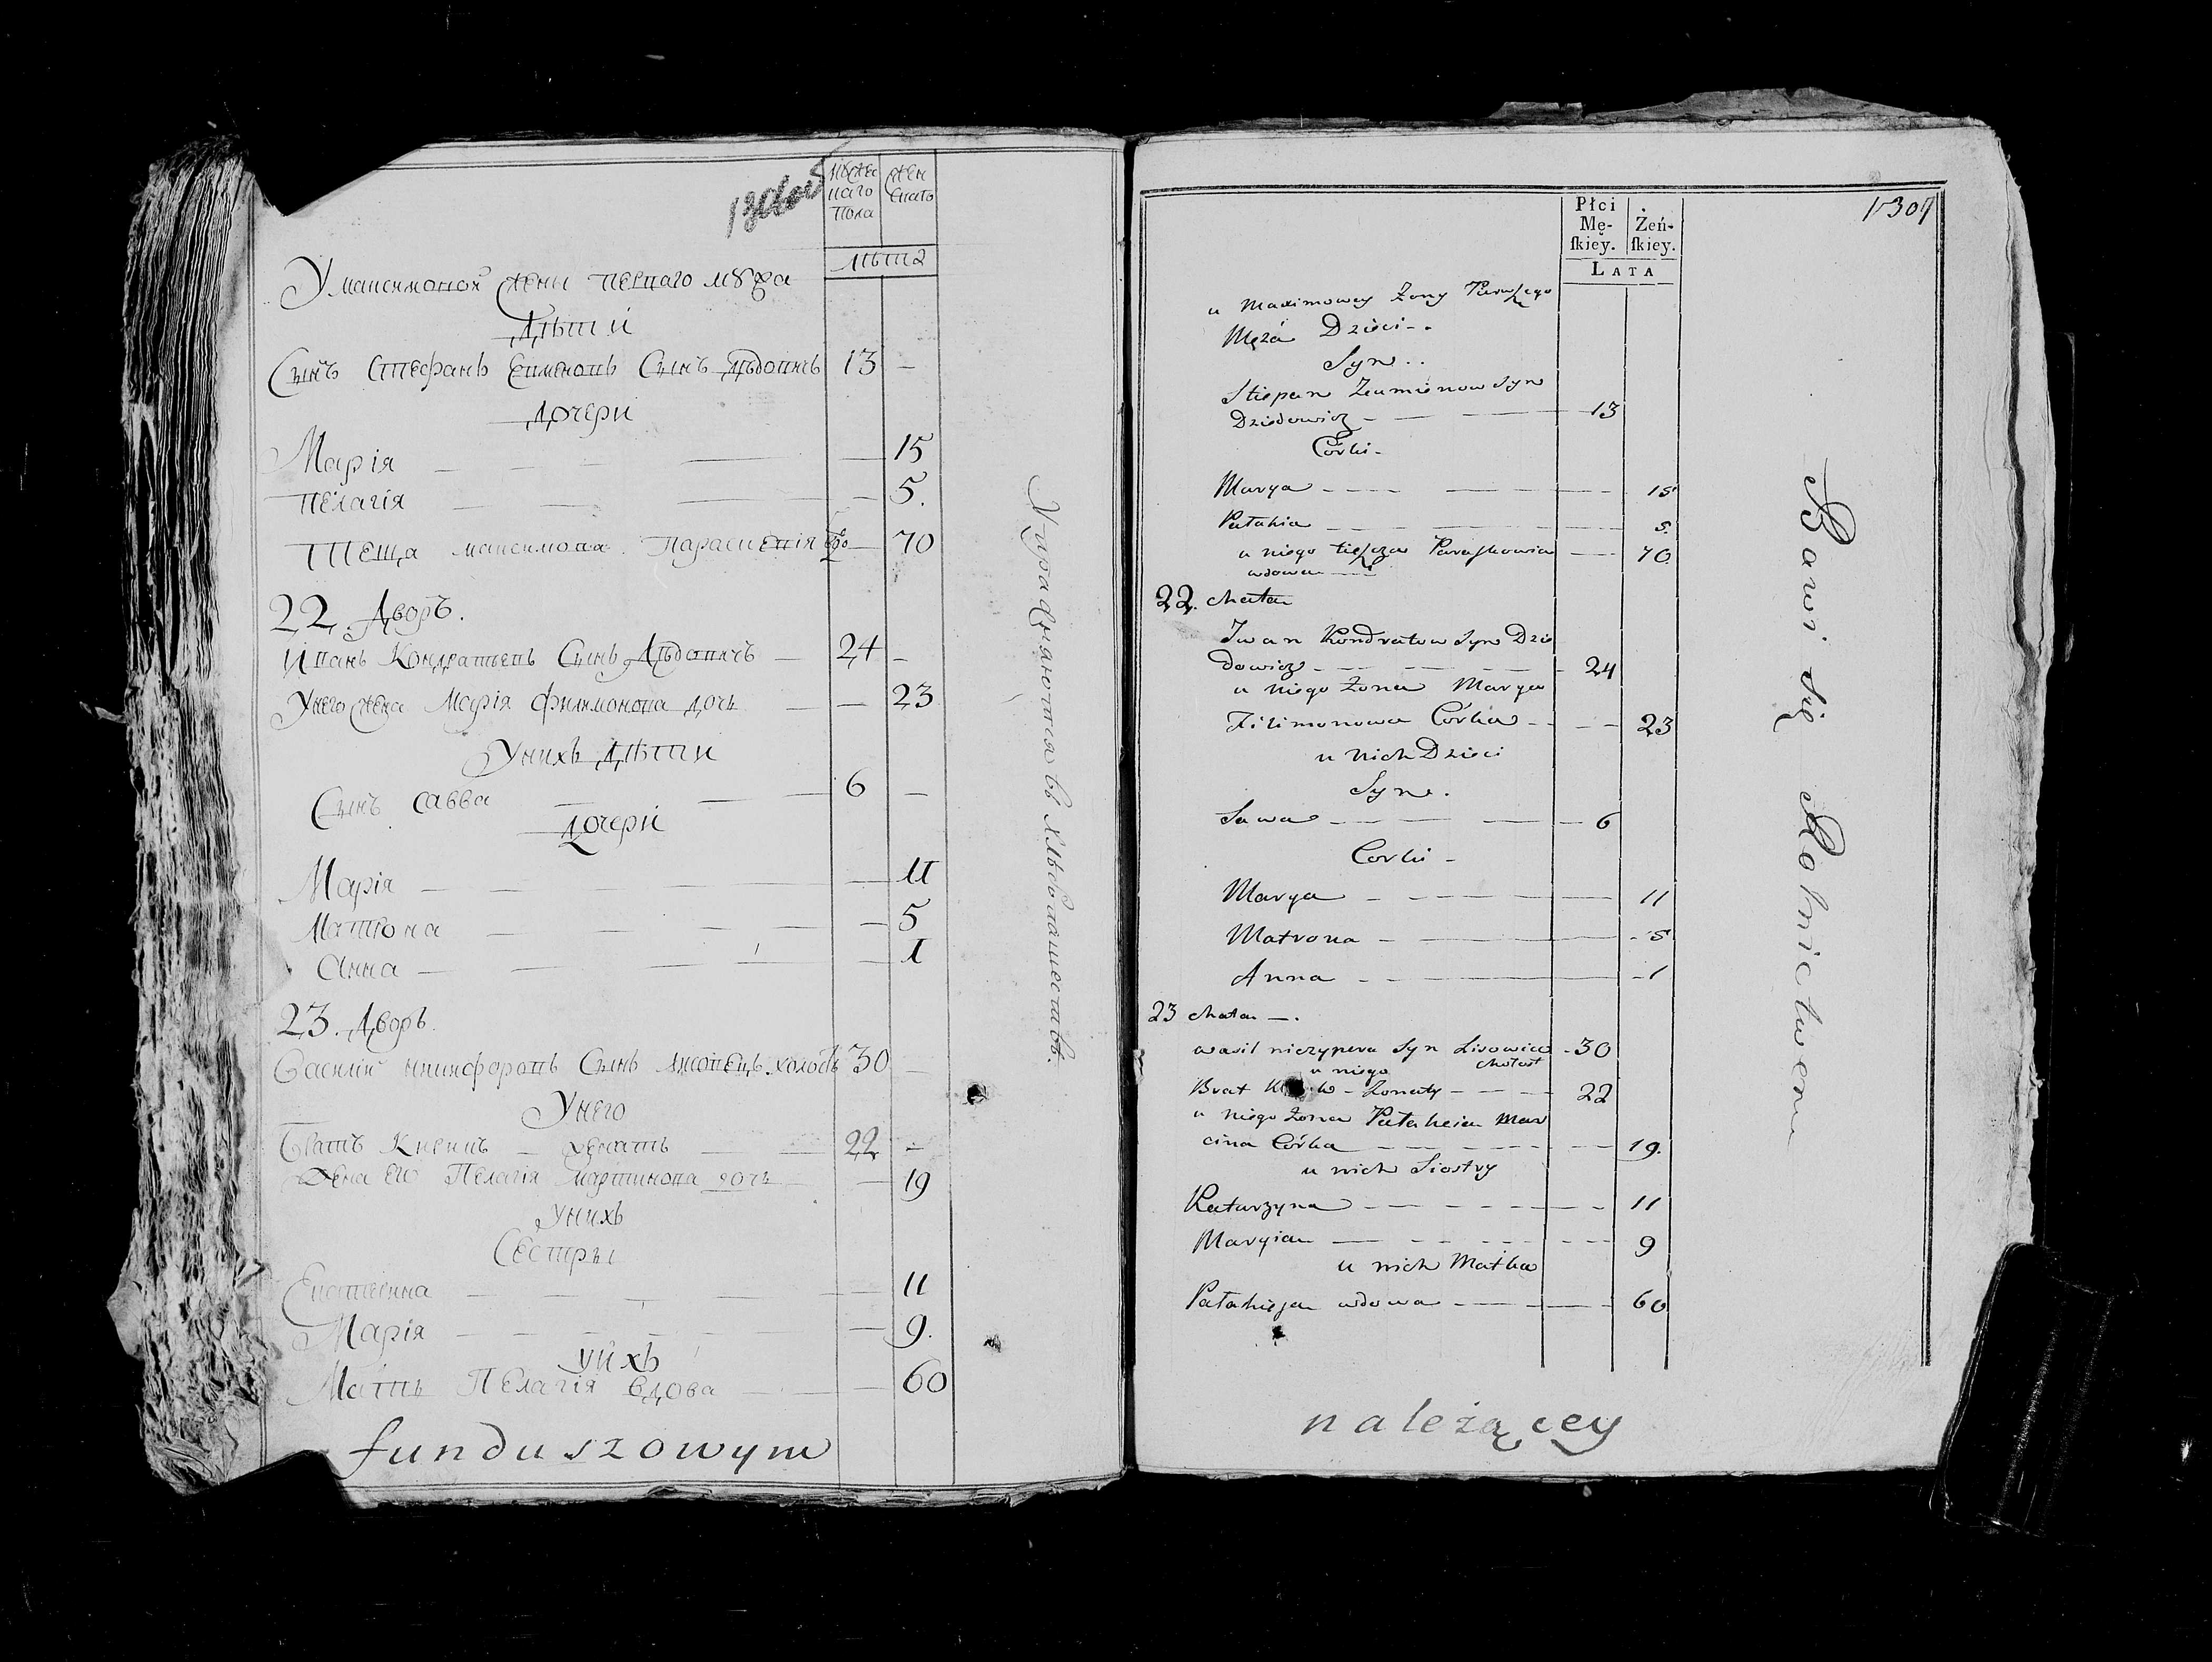 мужес
каго
пола
жен
скаго
лѣта
У максимовой жены перваго мужа
Дѣти
Сынъ Стефанъ Сынъ Дѣдовичъ 13 —
Дочери
Марія — 15
Пелагія — 5.
Теща максимова Параскевія — 70
22. Дворъ.
Иванъ Кондратьевъ Сынъ Дѣдовичъ — 24 —
У него жена Марія Филимонова дочь — 23
У нихъ Дѣти
Сынъ Савва — 6 —
Дочери
Марія — 11
Матрона — 5
Анна — 1
23. Дворъ.
Василій Никифоровъ Сынъ Лисовецъ холостъ 30 —
У него
Братъ женатъ — 22 —
Жена его Пелагія Мартинова дочь — 19
У нихъ
Сестры
Екатерина — 11
Марія — 9.
У нихъ
Мать Пелагія вдова — 60
funduszowym
въ хлѣбопашествѣ.
1307
Płci
Mę-
ſkiey.
Żeń-
ſkiey.
LATA
u Maximowey Żony Pierwszego
Męża Dzieci - -
Syn - -
Stiepan Syn
Dziedowicz — 13
Córki -
Marya — 15
Pałahia — 5
u niego tieszcza Paraskowia — 70
wdowa —
22. chata
Iwan Kondratow Syn Dzie
dowicz — 24
u niego Żona Marya
Filimonowa Córka — 23
u nich Dzieci
Syn.
Sawa — 6
Corki -
Marya — 11
Matrona — 5
Anna — 1
23 chata —.
wasil niczyperu Syn Lisowiec - 30
u niego chołost
Brat - Żonaty — 22
u niego żona Pałaheia Mar
cina Córka — 19.
u nich Siostry
Katarzyna — 11
Maryia — 9
u nich Matka
Pałahieja wdowa — 60
należącey
Bawi się Rolnictwem